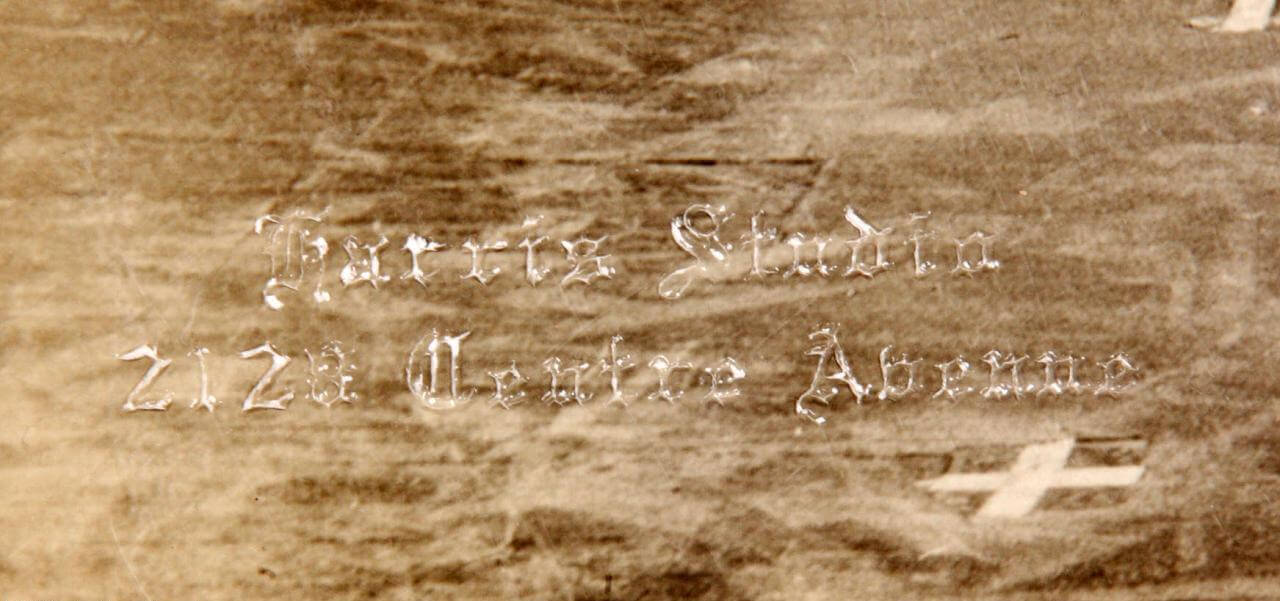 Harris Studio
2128 Centre Avenue